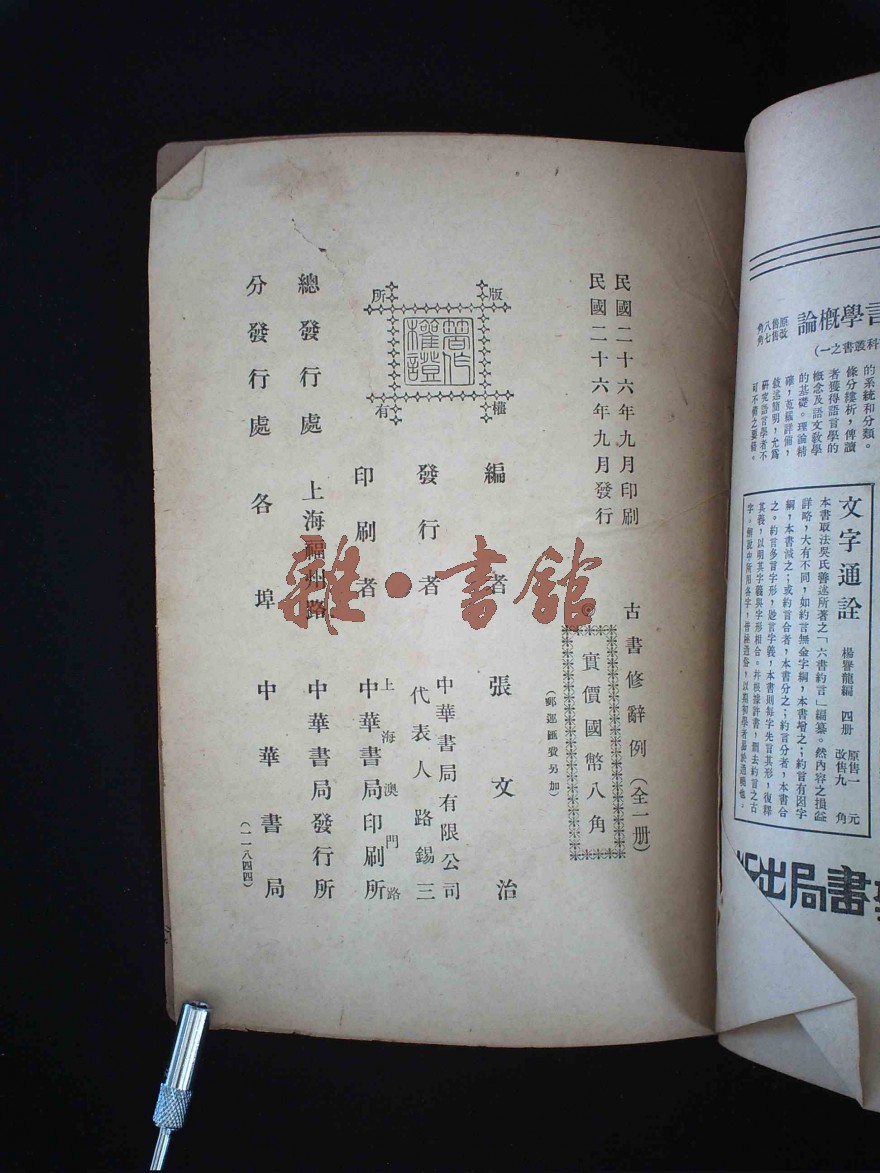 民國二十六年九月印刷
民國二十六年九月發行
古書修辭例(全一册)
實價國幣八角
(郵運匯費另加)
版權所有
著作權證
編者 張文治
發行者 中華書局有限公司
代表人路錫三
印刷者 上海澳門路
中華書局印刷所
總發行處 上海福州路 中華書局發行所
分發行處 各埠 中華書局
(一一八四四)
雜·書館
言學概論 原售八角 改售七角
科叢書之一)
的系統和分類。
條分縷析,俾讀
者獲得語言學的
概念及語文敎學
的基礎。理論精
確,蒐羅詳備,
敘述簡明,允爲
研究語言學者不
可不備之要籍。
文字通詮 楊譽龍編 四册 原售一元 改售九角
本書取法吳氏善述所著之「六書約言」編纂。然內容之損益
詳略,大有不同,如約言無金字綱,本書增之;約言有囱字
綱,本書減之;或約言合者,本書分之;約言分者,本書合
之。約言多言字形,尠言字義,本書則每字先言其形,復釋
其義,以明其字義與字形相合。幷根據許書,删去約言之古
字。解說中所用各字,皆極通俗,以期初學者易於通曉也。
書局出